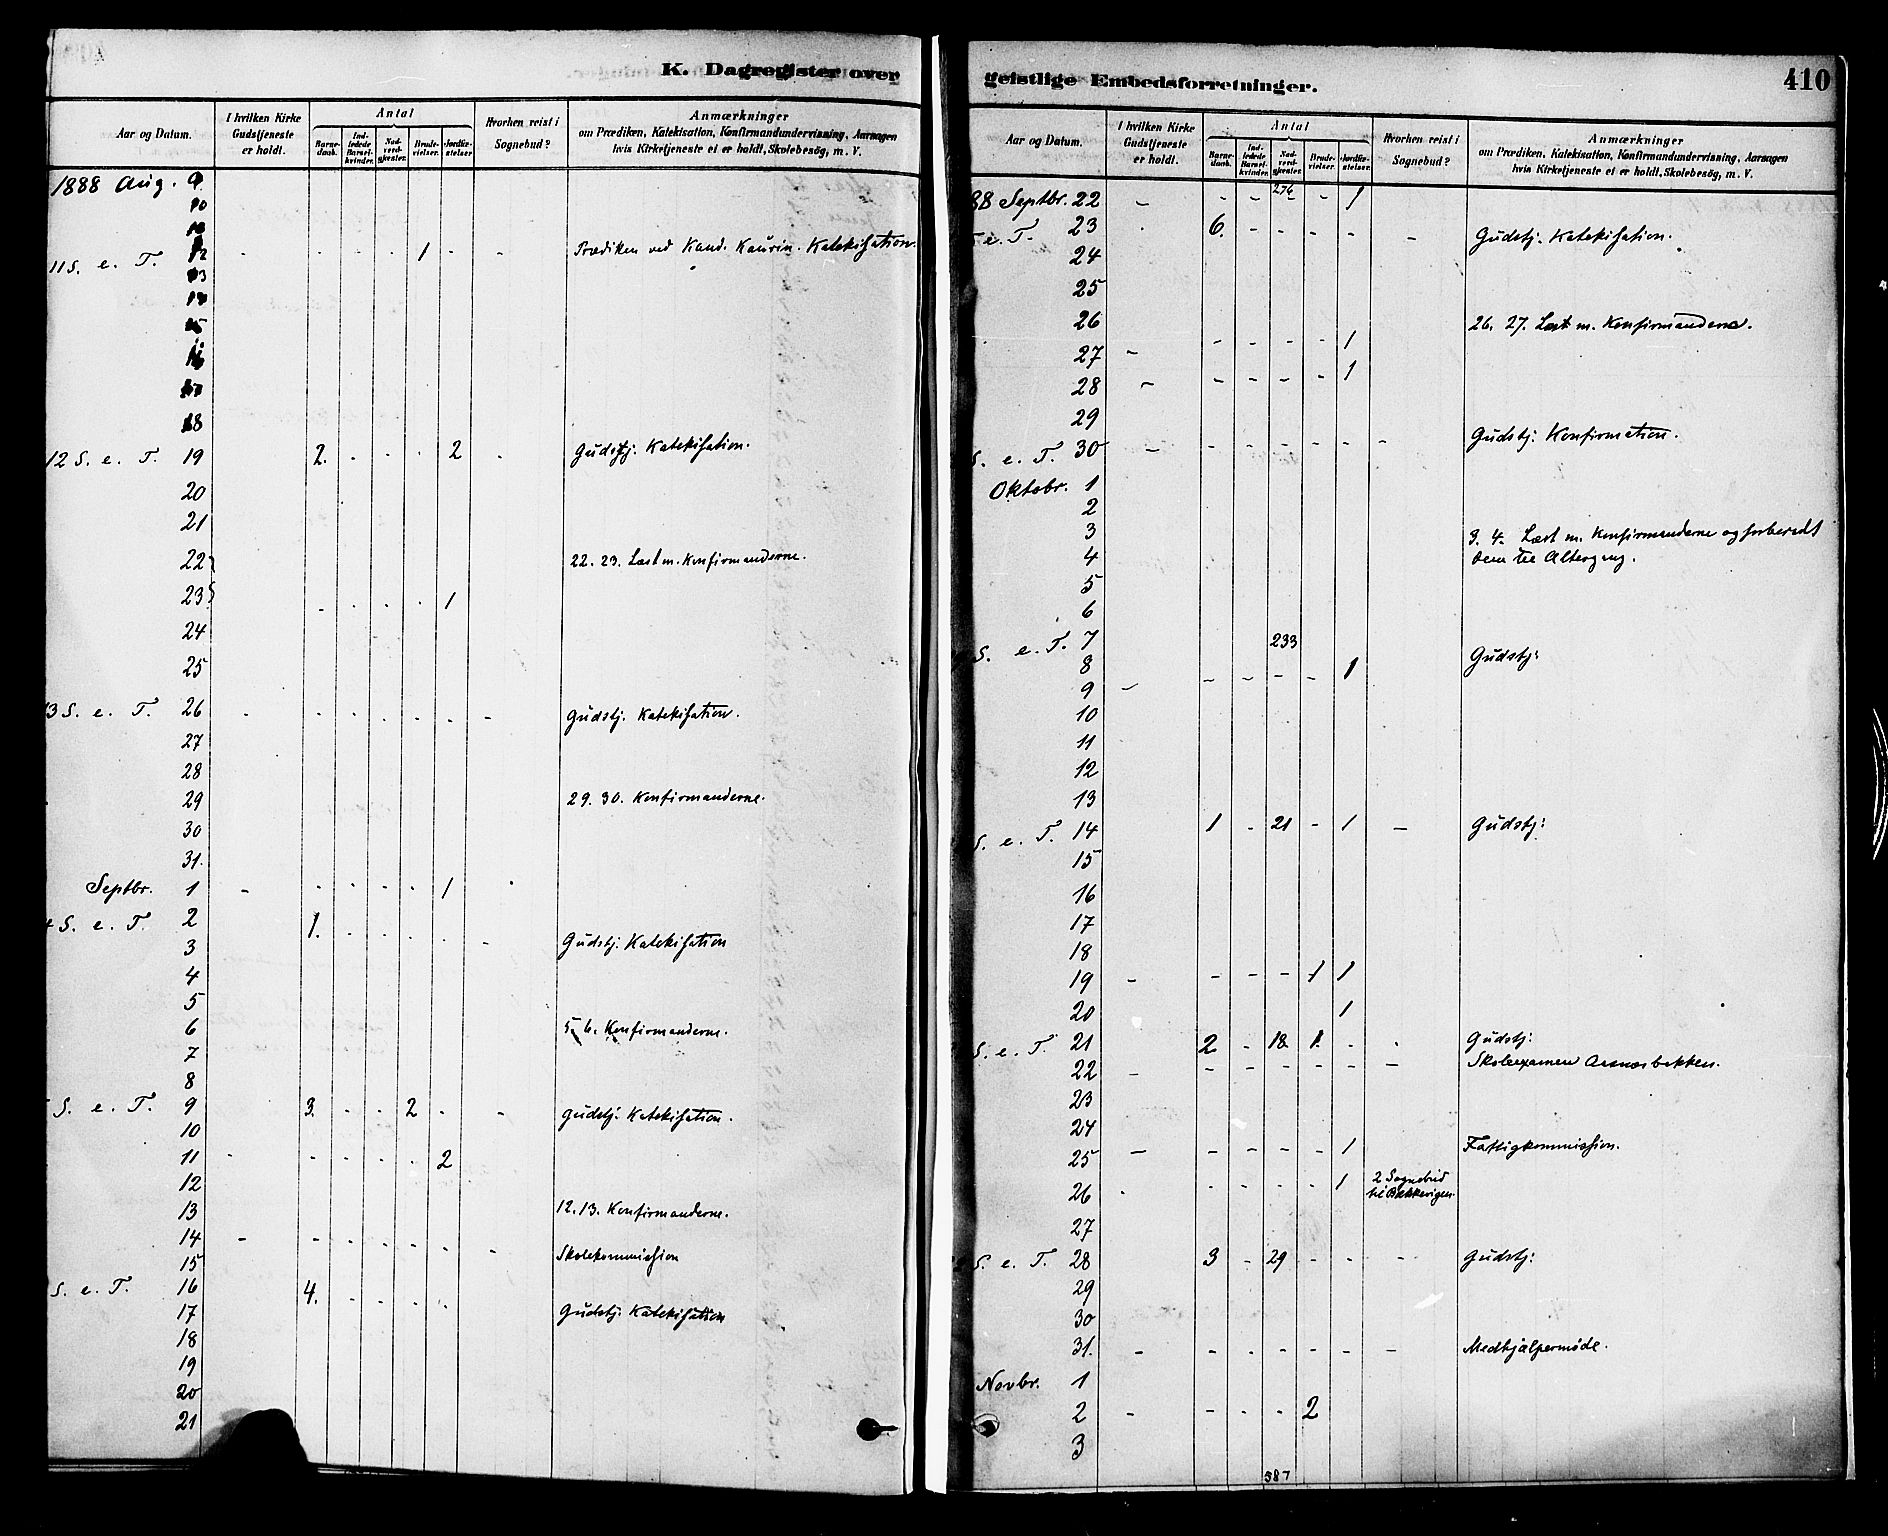 K. Dagregister over
Aar og Datum.
I hvilken Kirke Gudstjeneste er holdt.
Antal
Barnedaab.
Indledede Barselkvinder.
Nadverdgjester.
Brudevielser.
Jordfæstelser
Hvorhen reist i Sognebud?
Anmærkninger
om Prædiken, Katekisation, Konfirmandundervisning, Aarsagen
hvis Kirketjeneste et er holdt, Skolebesög, m. V.
1888 Aug. 9
10
11 S. e. T. 12 - - - - - 1 - - Prædiken ved Kand. Kaurin. Katekisation.
13
15
16
18
12 S. e. T. 19 2. - - - 2 - Gudstj. Katekisation.
20
21
22 22. 23. Læst m. Konfirmanderne.
23 - - - - 1
24
25
13 S. e. T. 26 - - - - - - - Gudstj. Katekisation.
27
28
29 29. 30. Konfirmanderne.
30
31.
Septbr. 1 - - - - - 1 -
4 S. e. T. 2 1. - - - - - Gudstj. Katekisation
3
4
5
6 5. 6. Konfirmanderne.
7
8
S. e. T. 9 3. - - 2 - - Gudstj. Katekisation.
10
11 - - - - - 2
12
13 12. 13. Konfirmanderne.
14 - - - - - - - Skolekommission
15
S. e. T. 16 4. - - - - Gudstj. Katekisation
17
18
19
20
21
geistlige Embedsforretninger.
410
Aar og Datum.
I hvilken Kirke Gudstjeneste er holdt.
Antal
Barnedaab.
Indledede Barselkvinder.
Nadverdgjester.
Brudevielser.
Jordfæstelser.
Hvorhen reist i Sognebud?
Anmærkninger
om Prædiken, Katekisation, Konfirmandundervisning, Aarsagen
hvis Kirketjeneste et er holdt, Skolebesög, m. V.
276
88 Septbr. 22 - - - - - 1
S. e. T. 23 6. - - - - - Gudstj. Katekisation.
24
25
26 26. 27. Læst m. Konfirmanderne.
27 - - - - - 1
28 - - - - - 1
29
S. e. T. 30 - - - - - - - Gudstj. Konfirmation.
Oktobr. 1
2
3 3. 4. Læst m. Konfirmanderne og forberedt
4 dem til Altergang.
5
6
S. e. T. 7 233 Gudstj:
8
9 - - - - - 1
10
11
12
13
S. e. T. 14 1 - 21 - 1 - Gudstj:
15
16
17
18
19 - - - - 1 1
20 1
S. e. T. 21 2 - 18 1. - - Gudstj:
22 - - - - - - - Skoleexamen
23
24
25 - - - - - 1 Fattigkommission.
26 - - - - - 1 2 Sognebud
til Bekkevigen.
27
S. e. T. 28 3 - 29 - - - Gudstj:
29
30
31. - - - - - - - Medhjælpermøde.
Novbr. 1
2 - - - - 2
3
587